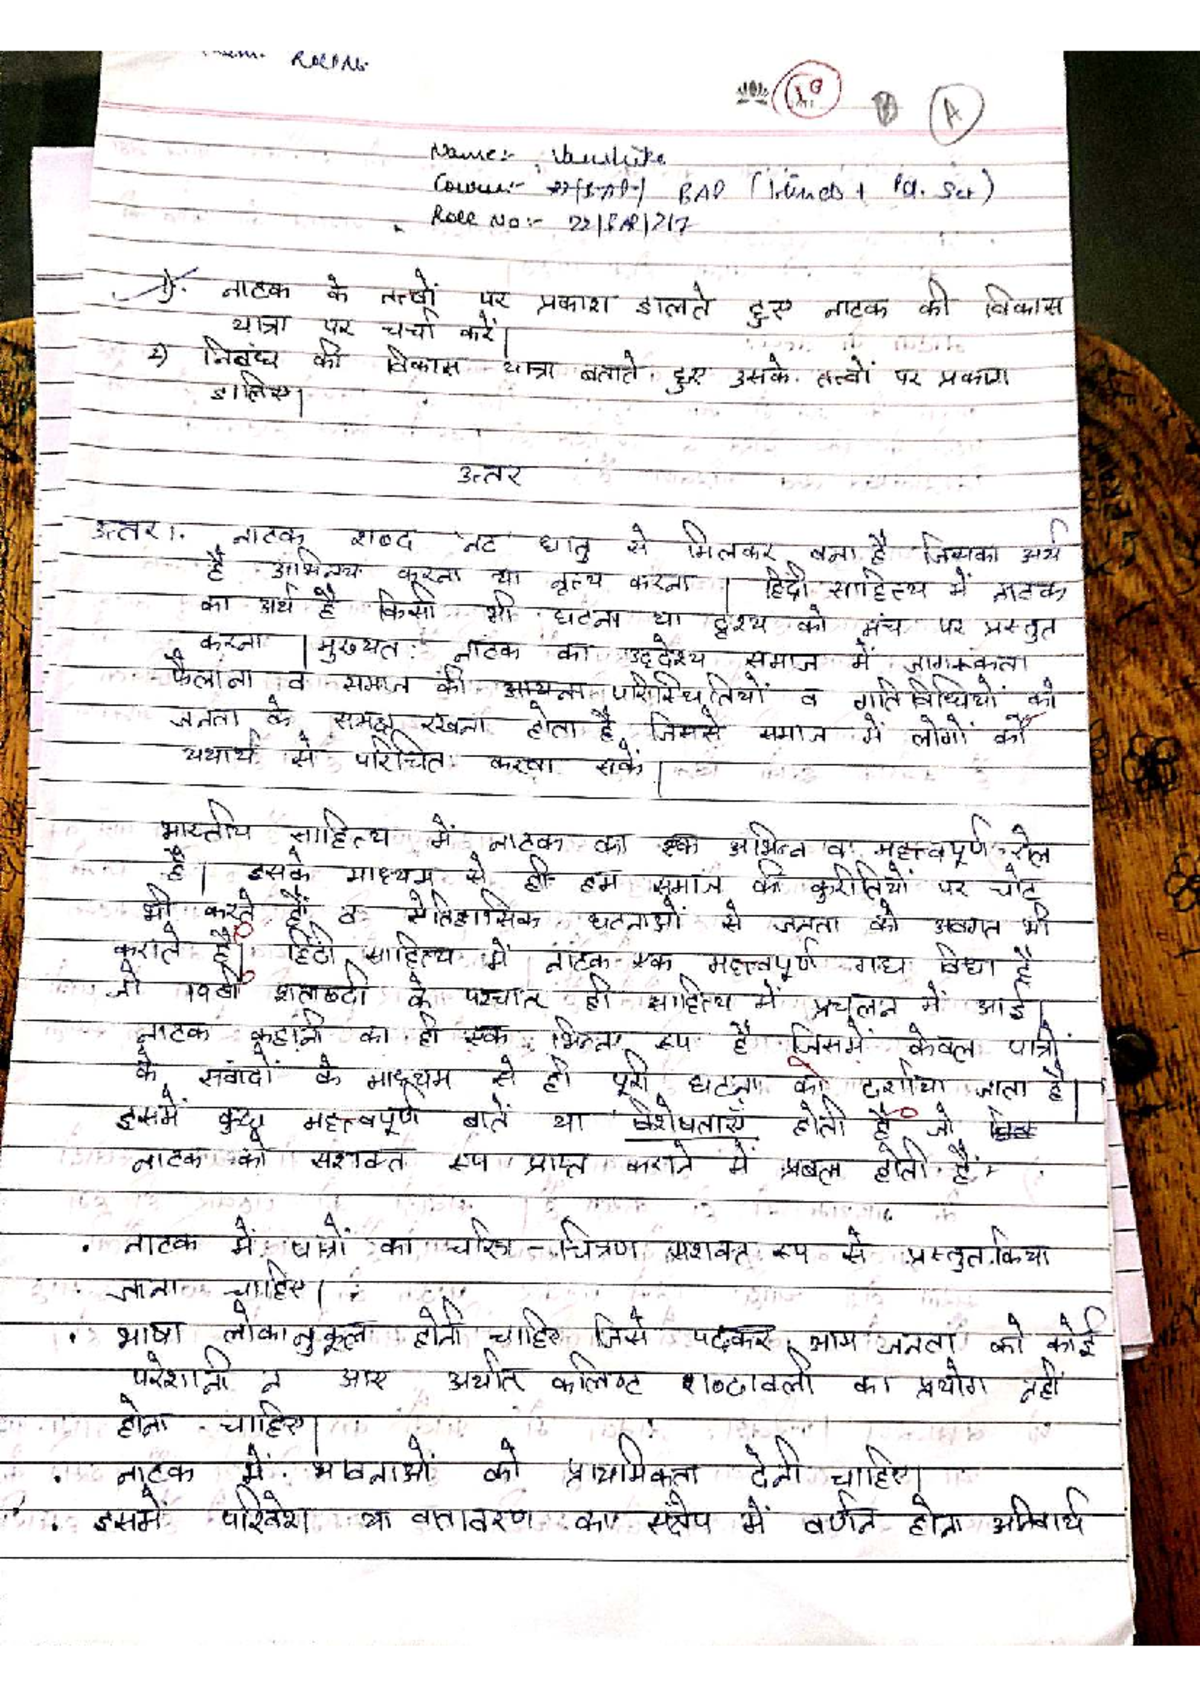 Roll No.
10
A
Name:- Vanshika
Course:- BAP (Hindi + Pol. Sci)
Roll No:- 22/BAP/217
1). नाटक के तत्वों पर प्रकाश डालते हुए नाटक की विकास
यात्रा पर चर्चा करें।
2) निबंध की विकास यात्रा बताते हुए उसके तत्वों पर प्रकाश
डालिए।
उत्तर
उत्तर1. नाटक शब्द नट धातु से मिलकर बना है जिसका अर्थ
है अभिनय करना या नृत्य करना। हिंदी साहित्य में नाटक
का अर्थ है किसी भी घटना या दृश्य को मंच पर प्रस्तुत
करना। मुख्यत: नाटक का उद्देश्य समाज में जागरूकता
फैलाना व समाज की परिस्थितियों व गतिविधियों को
जनता के समक्ष रखना होता है जिससे समाज में लोगों को
यथार्थ से परिचित करवा सकें।
भारतीय साहित्य में नाटक का एक अभिन्न व महत्त्वपूर्ण रोल
है। इसके माध्यम से ही हम समाज की कुरीतियों पर चोट
भी करते हैं व ऐतिहासिक घटनाओं से जनता को अवगत भी
कराते हैं। हिंदी साहित्य में नाटक एक महत्त्वपूर्ण गद्य विधा है
जो 19वीं शताब्दी के पश्चात ही साहित्य में प्रचलन में आई।
नाटक कहानी का ही एक भिन्न रूप है जिसमें केवल पात्रों
के संवादों के माध्यम से ही पूरी घटना को दर्शाया जाता है।
इसमें कुछ महत्त्वपूर्ण बातें या विशेषताएँ होती हैं जो
नाटक को सशक्त रूप प्राप्त कराने में प्रबल होती हैं:-
• नाटक में पात्रों का चरित्र-चित्रण सशक्त रूप से प्रस्तुत किया
जाना चाहिए।
• भाषा लोकानुकूल होनी चाहिए जिसे पढ़कर आम जनता को कोई
परेशानी न आए अर्थात कलिष्ट शब्दावली का प्रयोग नहीं
होना चाहिए।
• नाटक में भावनाओं को प्राथमिकता देनी चाहिए।
• इसमें परिवेश वातावरण का संक्षेप में वर्णन होना अनिवार्य